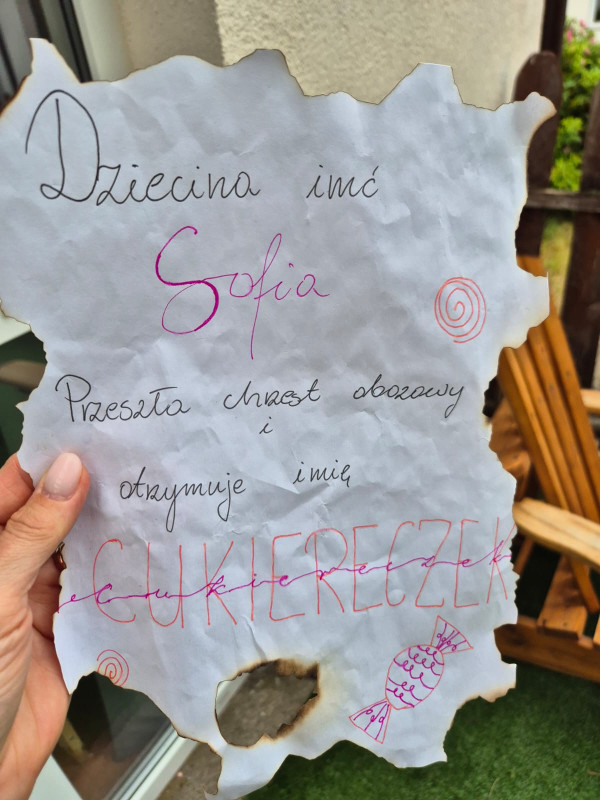 Dziecina imć
Sofia
Przeszła chrzest obozowy
i
otrzymuje imię
CUKIERECZEK
cukiereczek